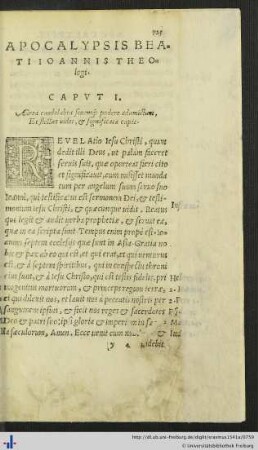 APOCALYPSIS BEA-
TI IOANNIS THEO-
logi.
CAPVT I.
& significata
REVELAtio Iesu Christi, quam
dedit illi Deus, ut palàm faceret
seruis suis, quæ oporteat fieri cito
et significauit, cum misisset manda
tum per angelum suum seruo suo
Ioanni, qui testificatus est sermonem Dei, & testi
monium Iesu Christi, & quæcunque uidit. Beatus
qui legit & audit uerba prophetiæ, & seruat ea,
quæ in ea scripta sunt Tempus enim propè est. Io-
annes septem ecclesijs quæ sunt in Asia. Gratia uo
bis & pax ab eo qui est, et qui erat, et qui uenturus
est, & à septem spiritibus, qui in conspectu throni
eius sunt, & à Iesu Christo, qui est testis fidelis, pri
mogenitus mortuorum, & princeps regum terræ,
et qui dilexit nos, et lauit nos à peccatis nostris per
sanguinem ipsius, & fecit nos reges & sacerdotes
Deo & patri suo: ipsi gloria & imperium in se-
cula sæculorum, Amen. Ecce uenit cum nu-
uidebit
http://dl.ub.uni-freiburg.de/diglit/erasmus1541a/0759
© Universitätsbibliothek Freiburg